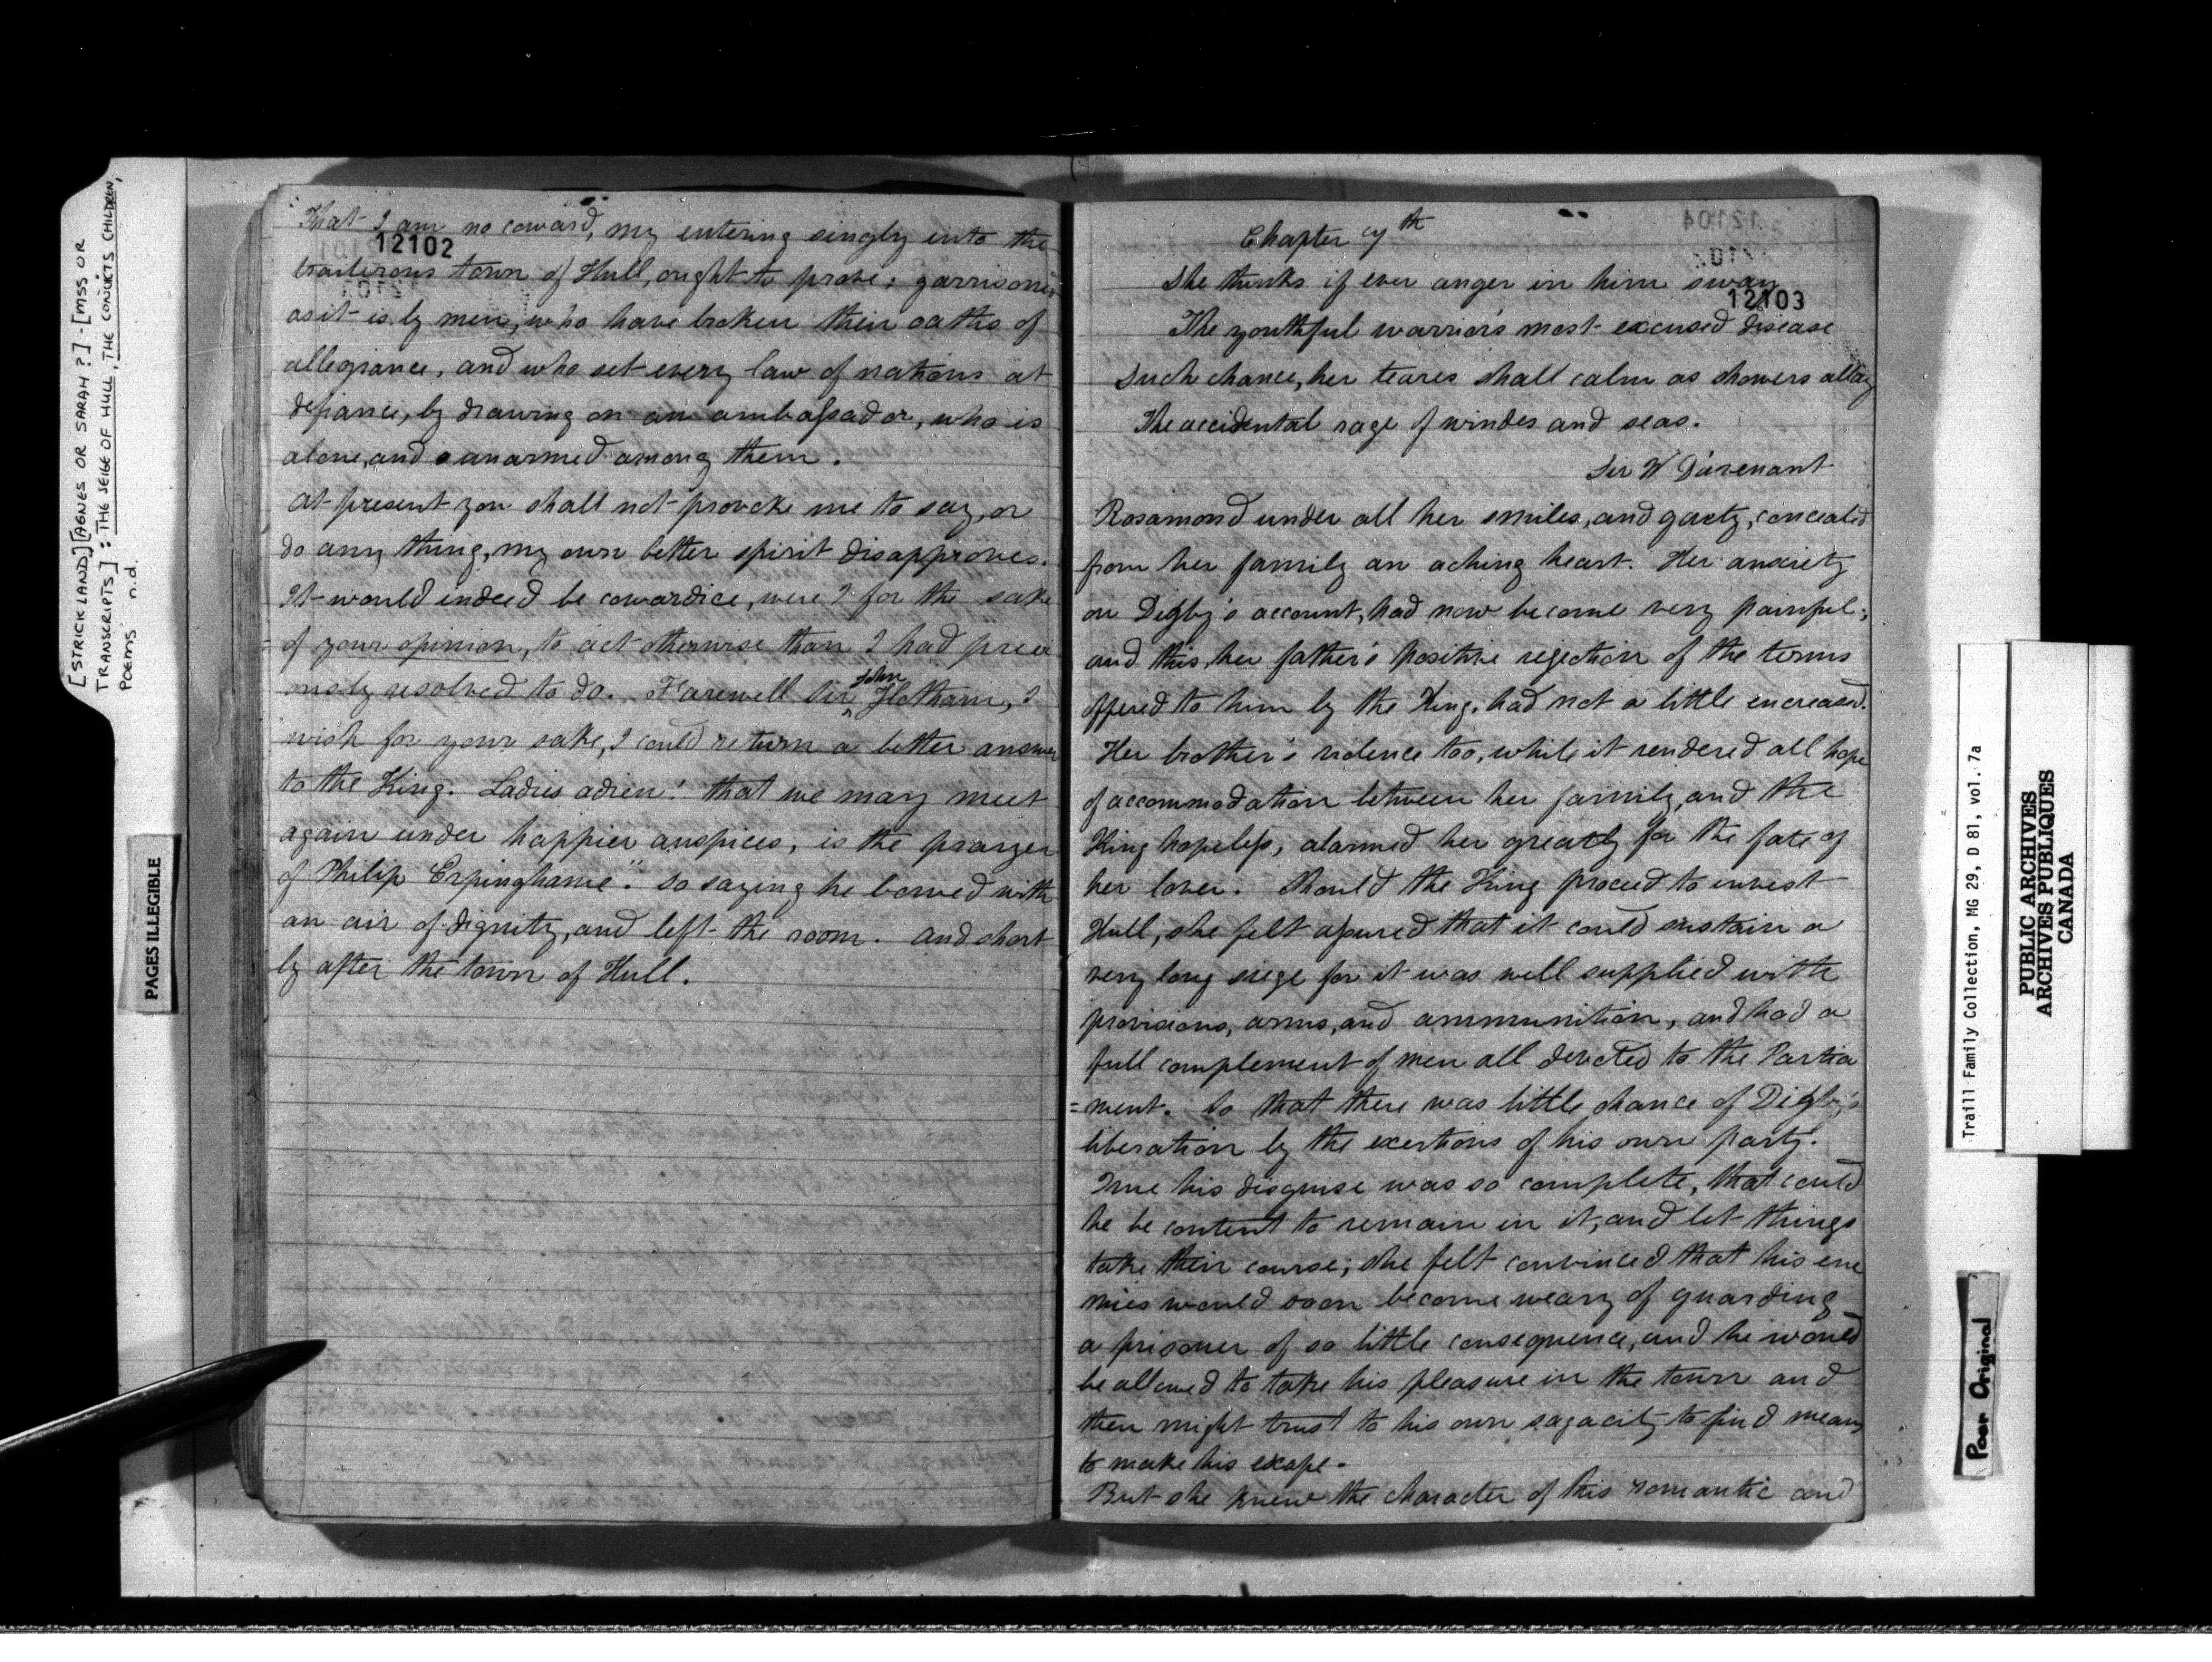 [STRICKLAND] [AGNES OR SARAH ?] - [MSS OR
TRANSCRIPTS] : THE SEIGE OF HULL, THE CONVICTS CHILDREN,
POEMS n.d.
PAGES ILLEGIBLE
12102
"That I am no coward, my entering singly into the
traiterous town of Hull, ought to prove; garrisoned
as it is by men, who have broken their oaths of
allegiance, and who set every law of nations at
defiance, by drawing on an ambassador, who is
alone, and unarmed among them.
At present you shall not provoke me to say, or
do any thing, my own better spirit disapproves.
It would indeed be cowardice, were I for the sake
= of your opinion, to act otherwise than I had previ
ously resolved to do. Farewell Sir John Hotham, I
wish for your sake, I could return a better answer
to the King. Ladies adieu! that we may meet
again under happier auspices, is the prayer
of Philip Erpinghame". So saying he bowed with
an air of dignity, and left the room. And short
ly after the town of Hull.
12103
Chapter 7th
She thinks if ever anger in him sway
The youthful warrior's most excused disease
Such chance, her teares shall calm as showers allay
The accidental rage of windes and seas.
Sir W D'avenant
Rosamond under all her smiles, and gaety, concealed
from her family an aching heart. Her anxiety
on Digby's account, had now become very painful;
and this, her father's positive rejection of the terms
offered to him by the King, had not a little encreased.
Her brother's violence too, while it rendered all hope
of accommodation between her family, and the
King hopeless, alarmed her greatly for the fate of
her lover. Should the King proceed to invest
Hull, she felt assured that it could sustain a
very long siege for it was well supplied with
provisions, arms, and ammunition, and had a
full complement of men all devoted to the Parlia
=ment. So that there was little chance of Digby's
liberation by the exertions of his own party.
True his disguise was so complete, that could
he be content to remain in it, and let things
take their course; she felt convinced that his ene
mies would soon become weary of guarding
a prisoner of so little consequence, and he would
be allowed to take his pleasure in the town and
then might trust to his own sagacity to find means
to make his escape.
But she knew the character of this romantic and
Traill Family Collection, MG 29, D 81, vol. 7a
PUBLIC ARCHIVES
ARCHIVES PUBLIQUES
CANADA
Poor Original